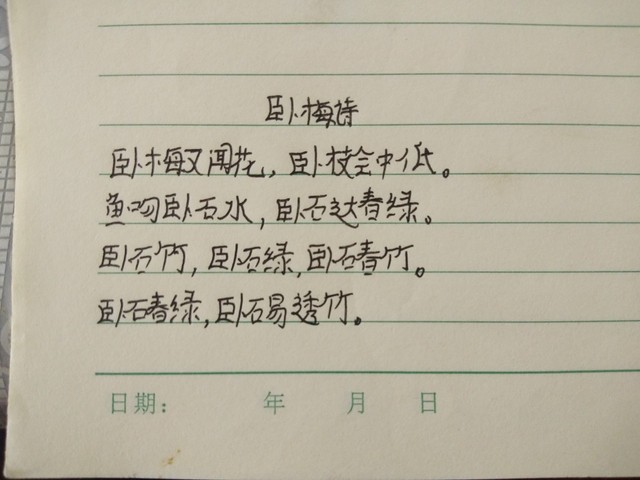 卧梅诗
卧梅又闻花，卧枝会中低。
鱼吻卧石水，卧石达春绿。
卧石竹，卧石绿，卧石春竹。
卧石春绿，卧石易透竹。
日期： 年 月 日